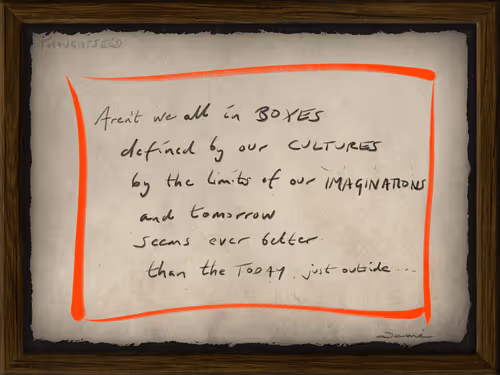 THOUGHTSEED
Aren't we all in BOXES
defined by our CULTURES
by the limits of our IMAGINATIONS
and tomorrow
seems ever better
than the TODAY just outside ...